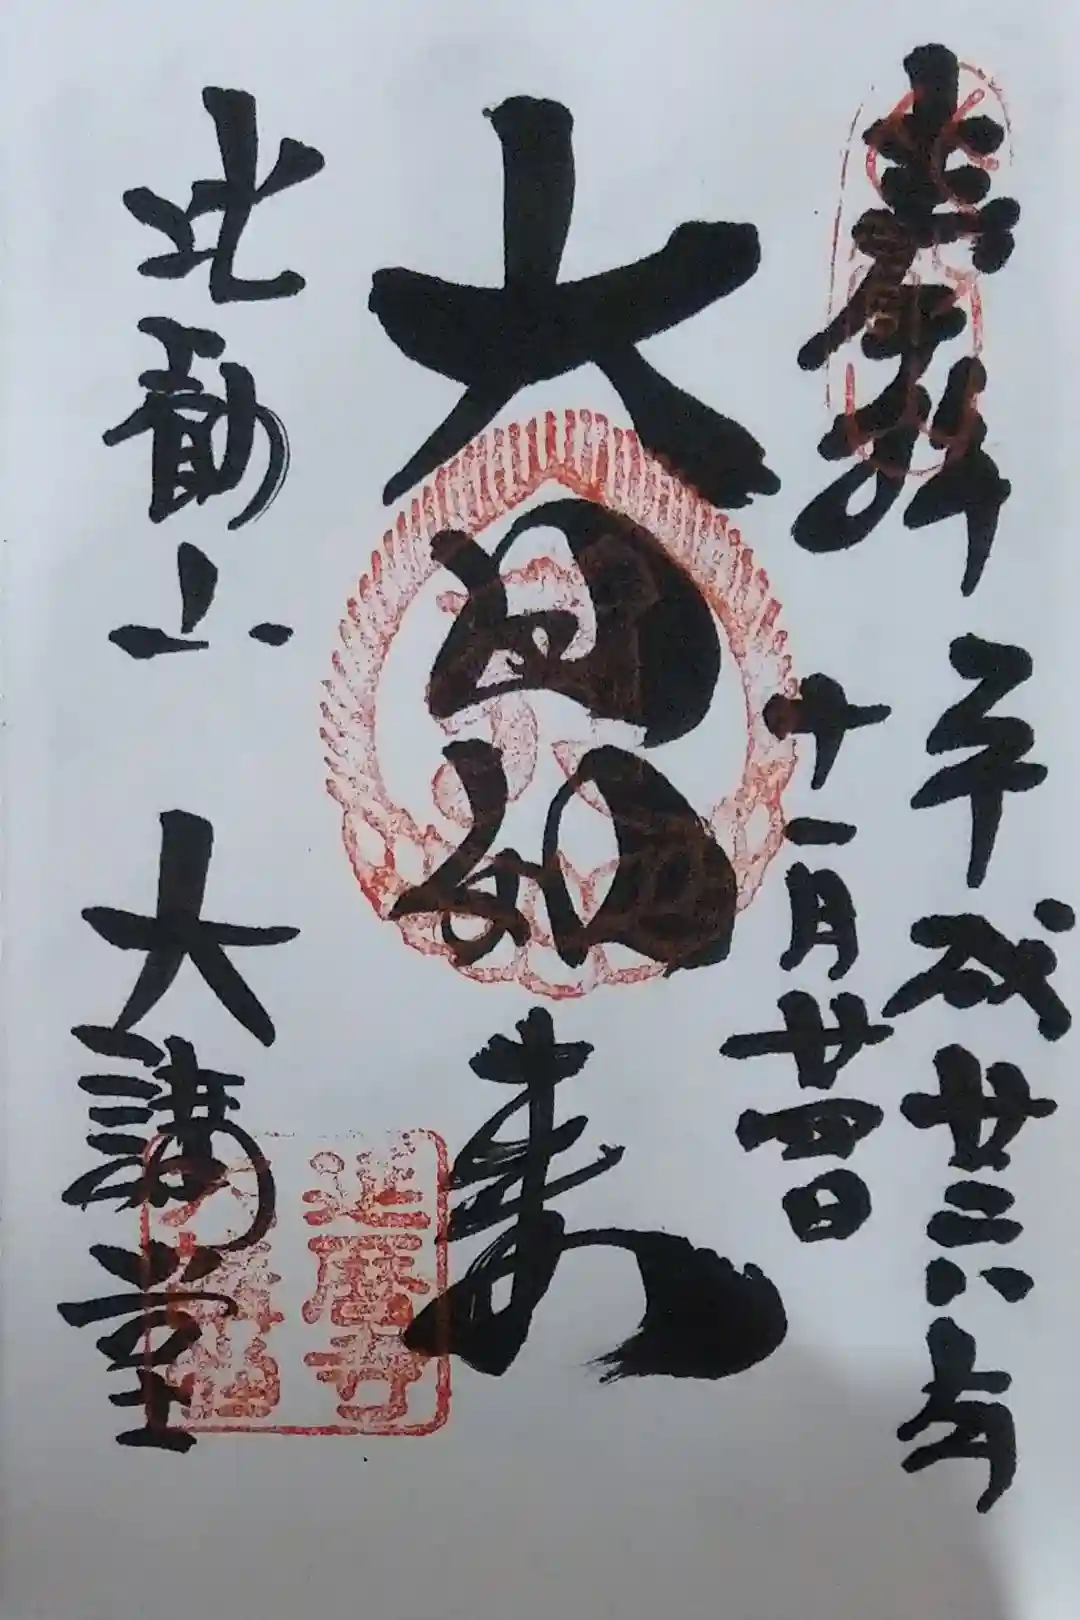 奉拝 平成廿六年
十一月廿四日
大日如来
比叡山 大講堂
延暦寺